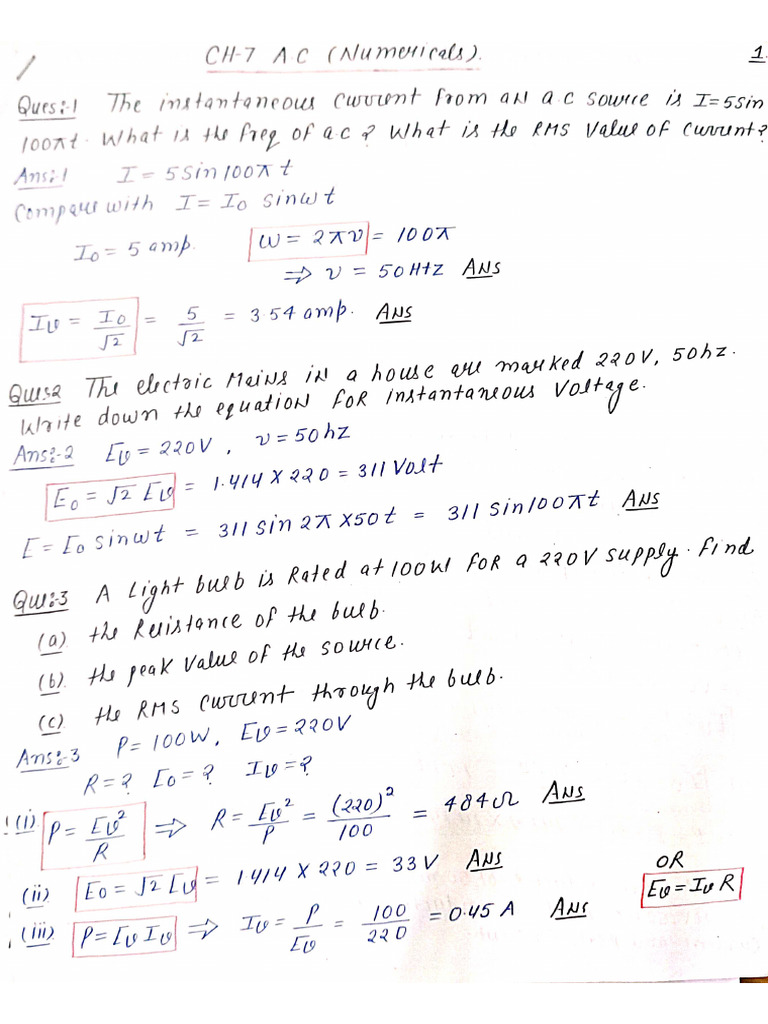 CH-7 A.C (Numericals).
1.
Ques:-1 The instantaneous current from an a.c source is I=5sin
100πt. What is the freq of a.c? What is the RMS value of current?
Ans:-1 I = 5sin100πt
Compare with I = I₀ sinωt
I₀ = 5 amp. ω = 2πυ = 100π
⇒ υ = 50Htz Ans
Iυ = I₀/√2 = 5/√2 = 3.54 amp. Ans
Ques2 The electric mains in a house are marked 220V, 50hz.
Write down the equation for instantaneous voltage.
Ans:-2 Eυ = 220V, υ = 50hz
E₀ = √2 Eυ = 1.414 X 220 = 311 Volt
E = E₀ sinωt = 311 sin 2π X50 t = 311 sin100πt Ans
Que:-3 A light bulb is rated at 100W for a 220V supply. Find
(a) the Resistance of the bulb.
(b) the peak value of the source.
(c) the RMS current through the bulb.
Ans:-3 P = 100W, Eυ = 220V
R = ? E₀ = ? Iυ = ?
(i) P = Eυ²/R ⇒ R = Eυ²/P = (220)²/100 = 484Ω Ans
(ii) E₀ = √2 Eυ = 1.414 X 220 = 33V Ans
OR
(iii) P = Eυ Iυ ⇒ Iυ = P/Eυ = 100/220 = 0.45 A Ans
Eυ = Iυ R